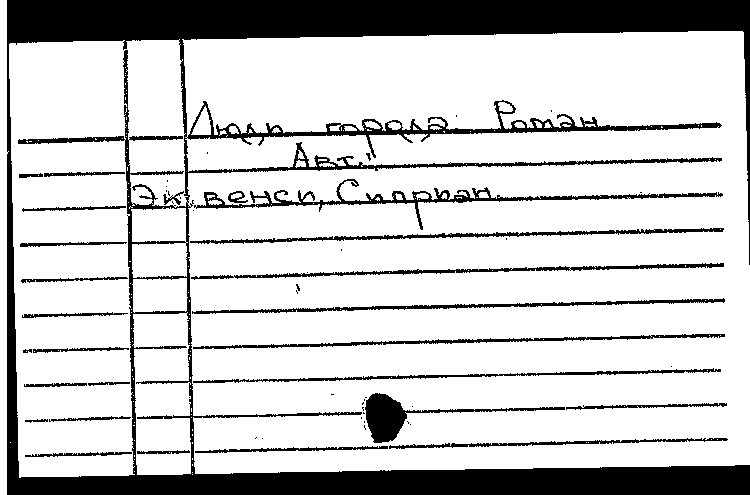 Люди города. Роман.
Авт.:
Эквенси, Сиприан.